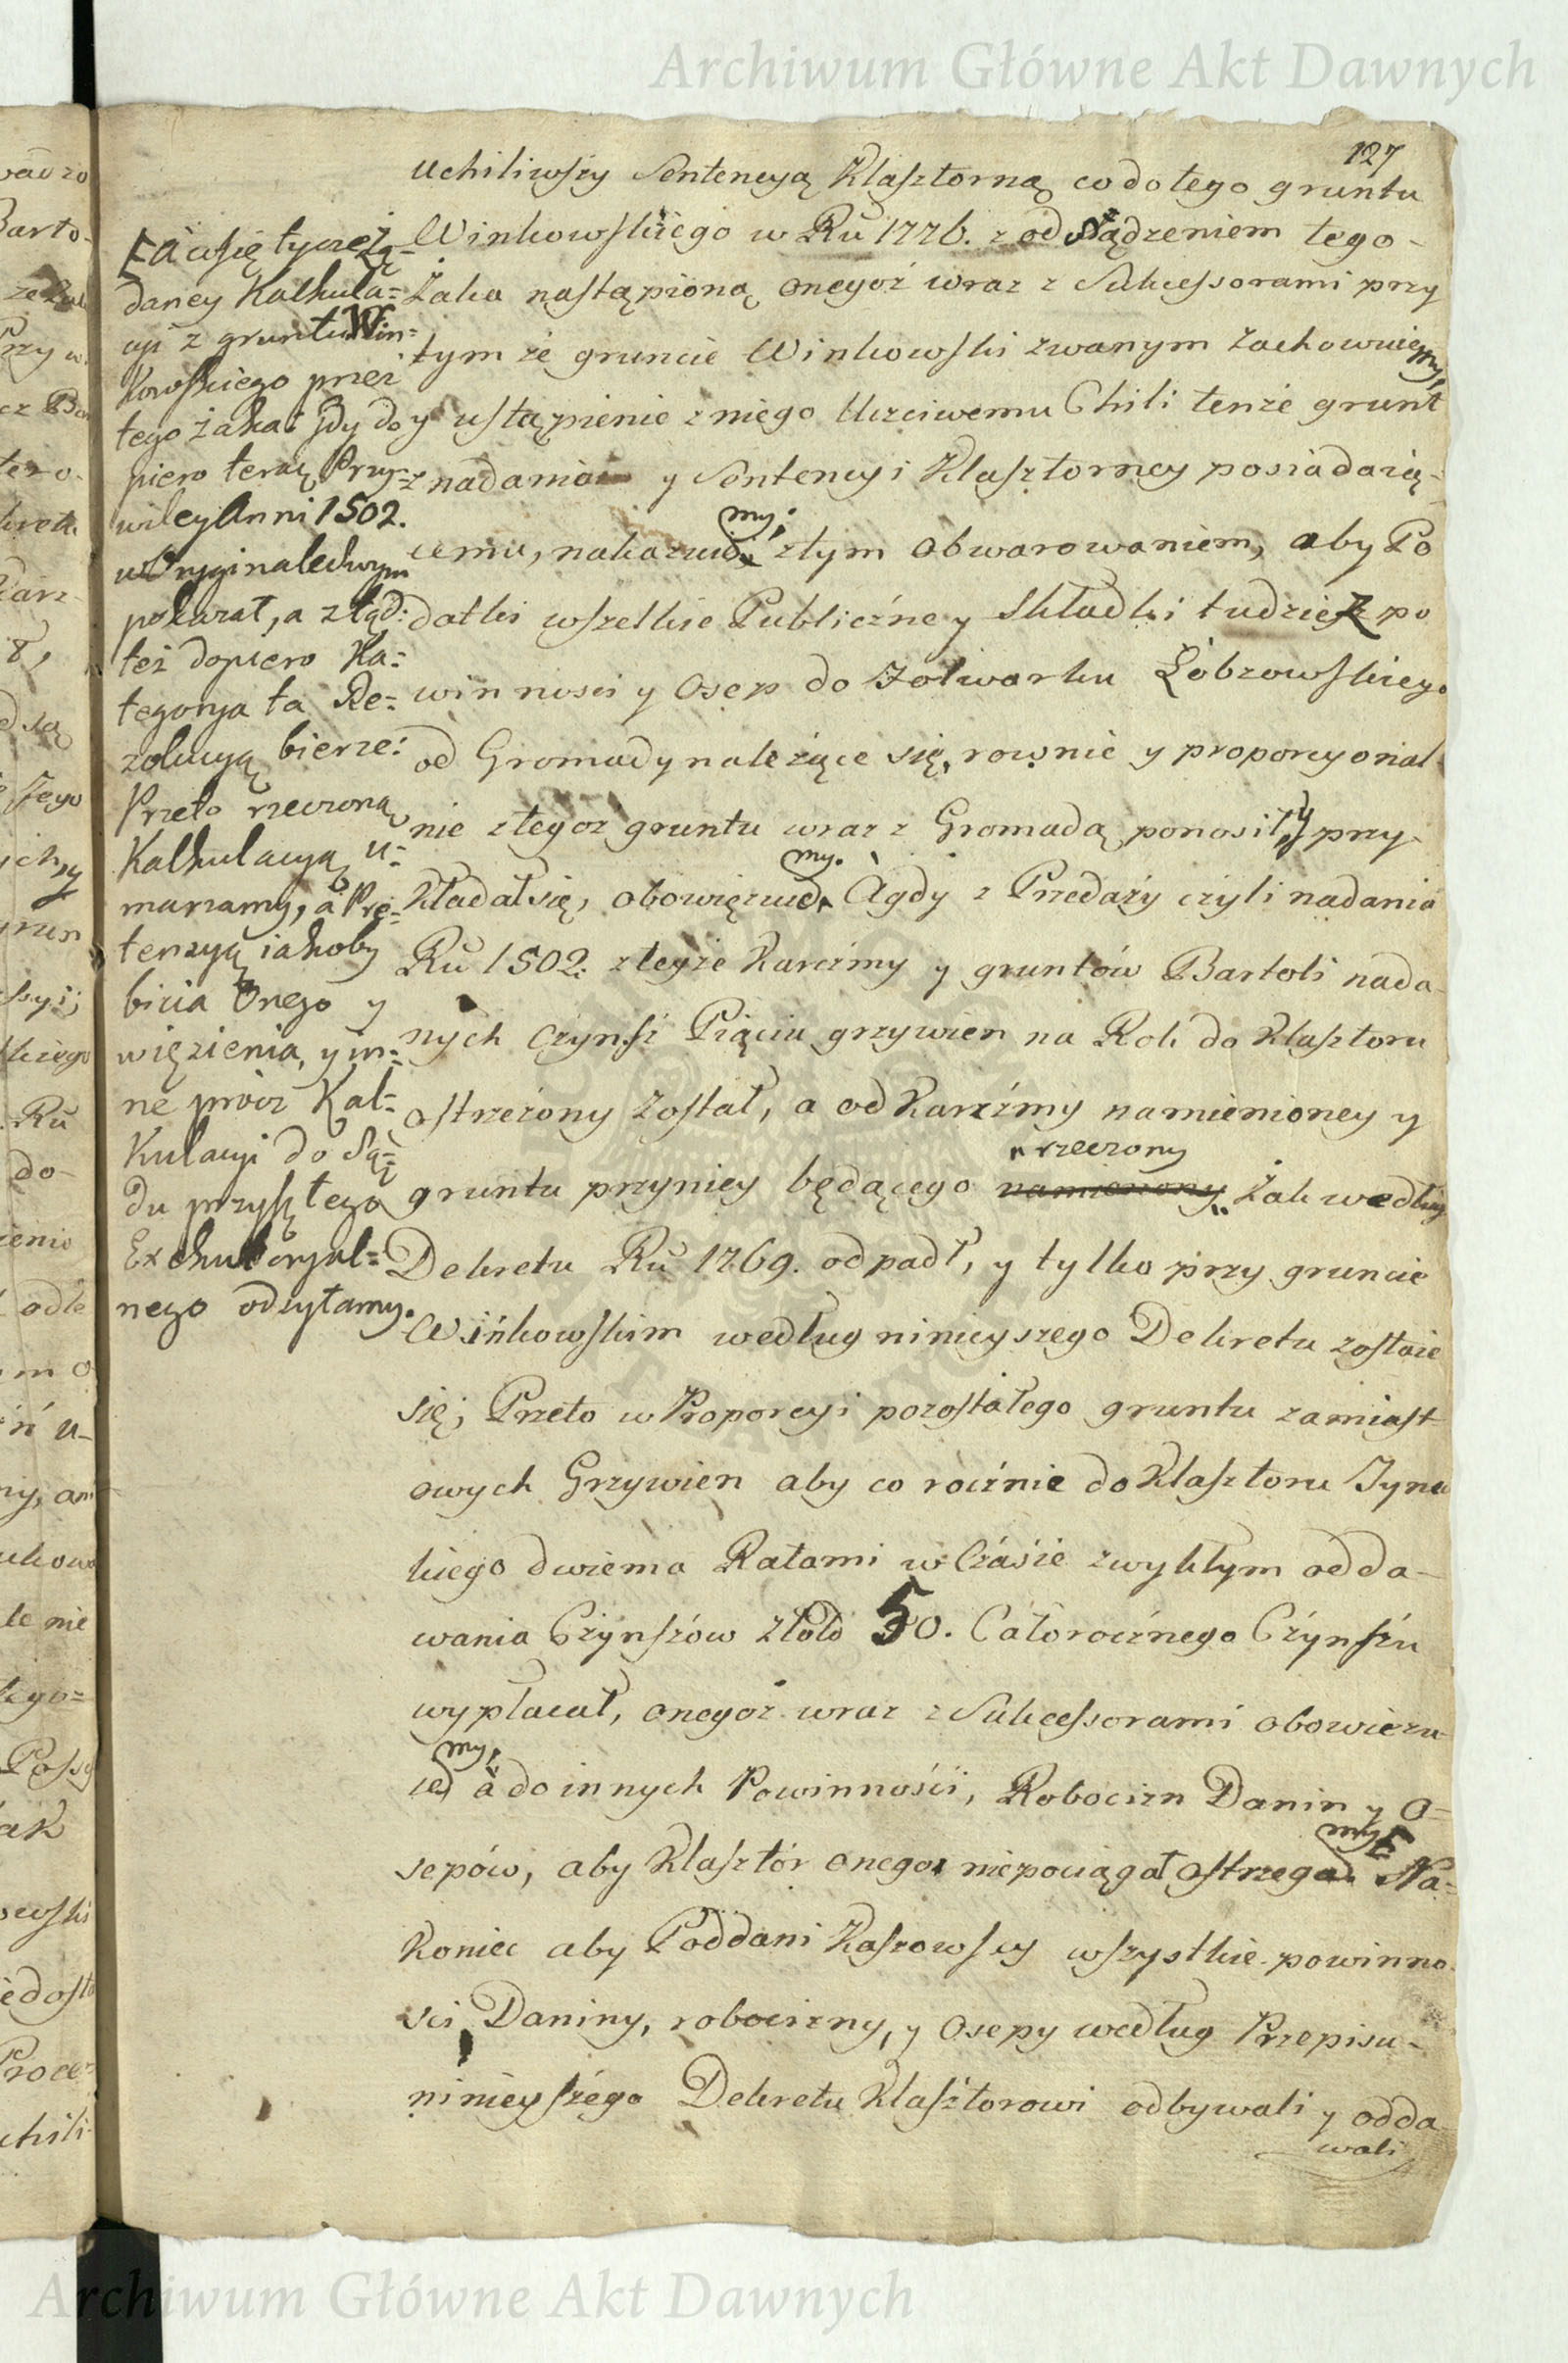 Archiwum Główne Akt Dawnych
127
uchiliwszy Sentencyą Klasztorną co do tego gruntu
Winkowskiego w Ru 1776. z od sądzeniem tego-
Żaka nastąpioną onegoż wraz z Sukcessorami przy
tym że gruncie Winkowski zwanym zachowuiemy,
y ustąpienie z niego Uczciwemu Chili tenże grunt
z nadania y Sentencyi Klasztorney posiadaią-
cemu, nakazuie my; z tym obwarowaniem, aby Po
datki wszelkie Publiczne y Składki tudzież po
winnosci y Osep do Folwarku Łobzowskiego
od Gromady należące się, rownie y proporcyonal
nie z tegoz gruntu wraz z Gromadą ponosił, y przy-
kładał się, obowięzuie my. A gdy z Przedaży czyli nadania
Ru 1502. z teyże Karczmy y gruntów Bartoli nada-
nych Czynsz Pięciu grzywien na Rok do Klasztoru
ostrzeżony został, a od Karczmy namienioney y
rzeczony
gruntu przyniey będącego namieniony Żak według
Dekretu Ru 1769. odpadł, y tylko przy gruncie
Wińkowskim według ninieyszego Dekretu zostaie
się; Przeto w Proporcyi pozostałego gruntu zamiast
owych Grzywien aby co rocznie do Klasztoru Tynie
kiego dwiema Ratami w Czasie zwykłym odda-
wania Czynszów Złotb 50. Całorocznego Czynszu
wypłacał, onegoż wraz z Sukcessorami obowiezu
ie my, à do innych Powinnośći, Robocizn Danin y O=
sepów, aby Klasztór onegoż niepociągał ostrzega my Na=
koniec aby Poddani Kaszowscy wszystkie powinno
sci, Daniny, robocizny, y Osepy według Przepisu-
ninieyszego Dekretu Klasztorowi odbywali y odda
wali
[a co się tycze żą=
daney Kalkula=
cyi z gruntu Win=
kowskiego przez
tego żaka: gdy do
piero teraz Przy=
wiley Anni 1502.
w Oryginale
pokazał, a ztąd:
też dopiero Ka=
tegorya ta Re=
zolucyą bierze:
Przeto rzeczoną
Kalkulacyą u=
marzamy, a Pre=
tensyą iakoby
bicia Onego y
więzienia, y in=
ne prócz Kal=
kulacyi do Są=
du przyszłego
Exekutoryal=
nego odsyłamy.
Archiwum Główne Akt Dawnych